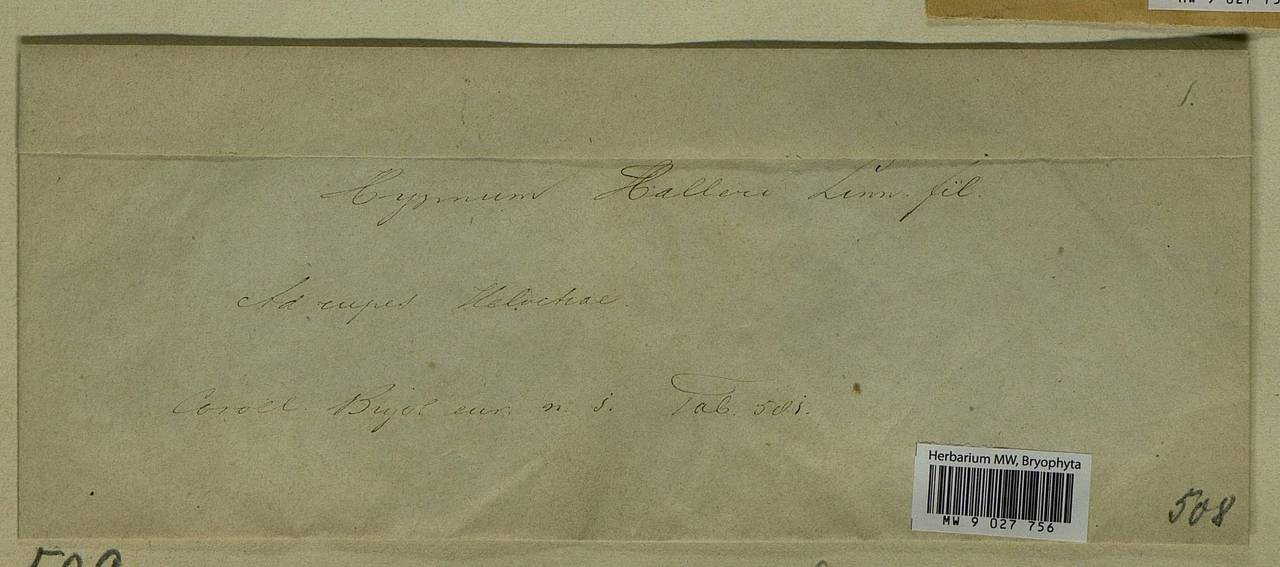 1.
Hypnum Halleri Linn. fil.
Ad rupes Helvetiae.
Coroll. Bryol. eur. n. 3. Tab. 581.
Herbarium MW, Bryophyta
MW 9 027 756
508